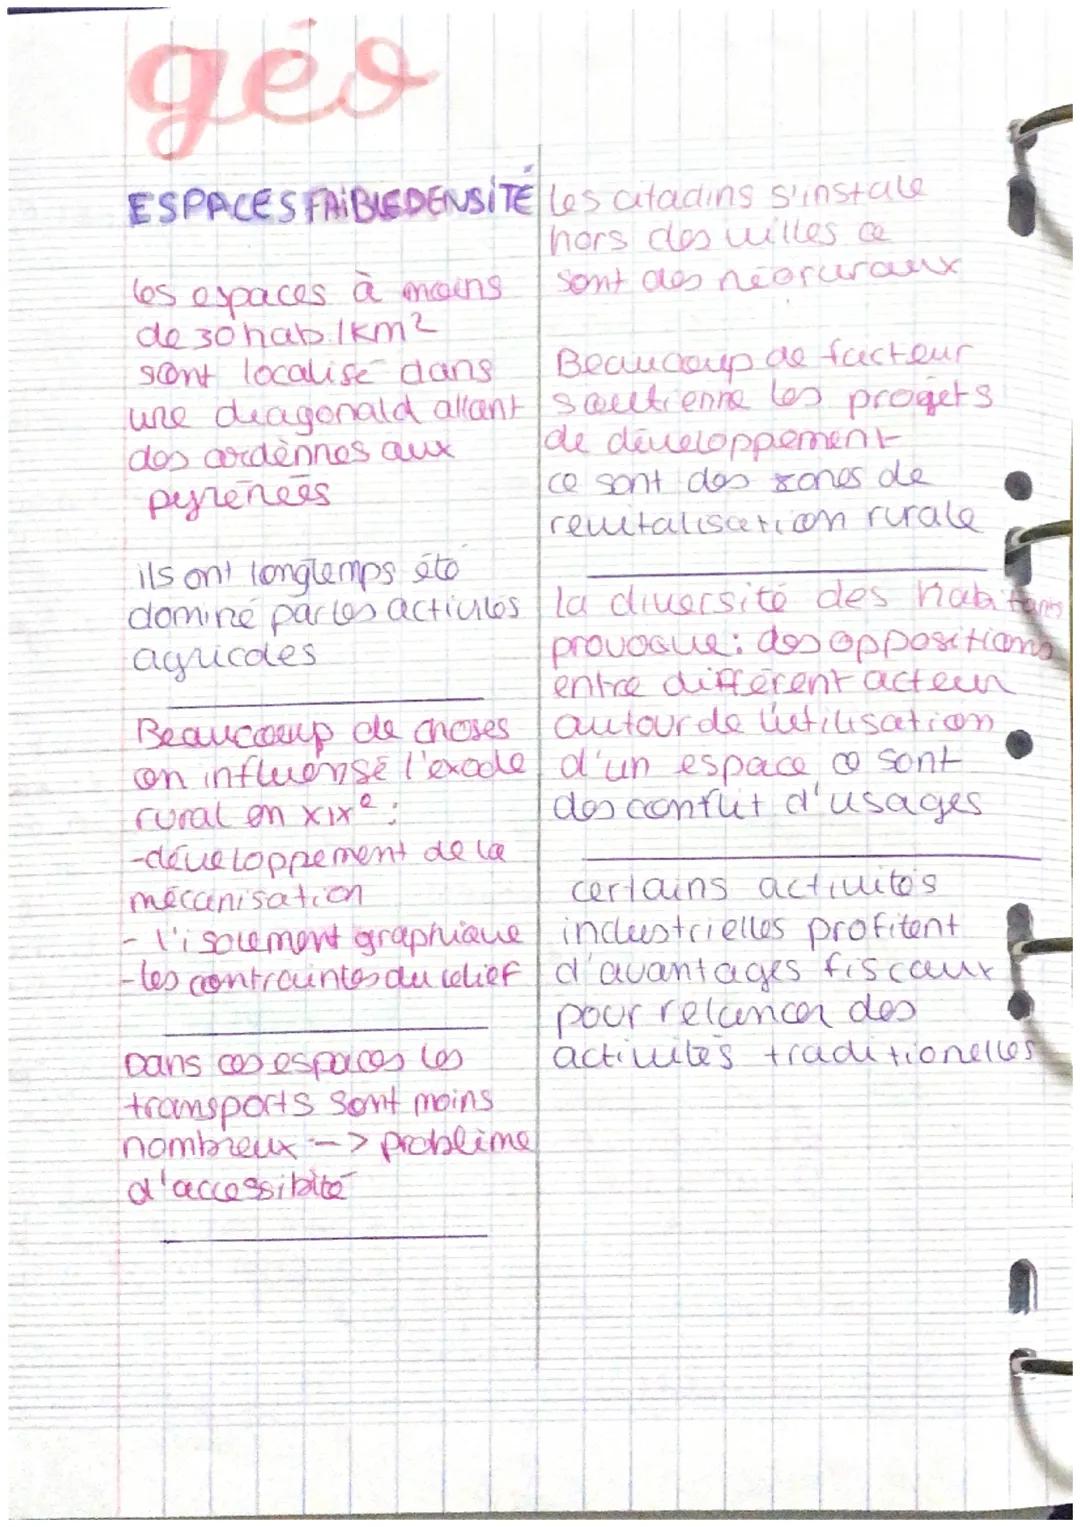 géo
ESPACES FAIBLE DENSITÉ
les espaces à moins
de 30 hab/km²
sont localisé dans
une diagonald allant
des ardènnes aux
pyrénéés
ils ont longtemps été
dominé par les activités
agricoles
Beaucoup de choses
on influensé l'exode
rural en XIXe :
-développement de la
mécanisation
- l'isolement graphique
- les contraintes du relief
Dans ces espaces les
transports sont moins
nombreux --> problème
d'accessibité
les citadins s'instale
hors des villes ce
sont des néoruraux
Beaucoup de facteur
soutienne les progets
de développement
ce sont des zones de
revitalisation rurale
la diversité des habitants
provoque : des oppositions
entre différent acteur
autour de l'utilisation
d'un espace ce sont
des conflit d'usages
certains activités
industrielles profitent
d'avantages fiscaux
pour relancer des
activités traditionelles